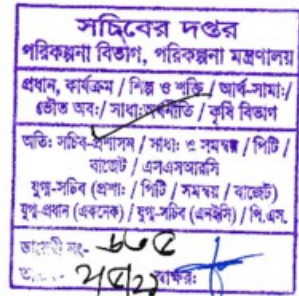 সচিবের দপ্তর
পরিকল্পনা বিভাগ, পরিকল্পনা মন্ত্রণালয়
প্রধান, কার্যক্রম / শিল্প ও শক্তি / আর্থ-সামাঃ/
ভৌত অবঃ/ সাধাঃ অর্থনীতি / কৃষি বিভাগ
অতিঃ সচিব-প্রশাসন / সাধাঃ ও সমন্বয় / পিটি /
বাজেট / এসএসআরসি
যুগ্ম-সচিব (প্রশাঃ / পিটি / সমন্বয় / বাজেট)
যুগ্ম-প্রধান (একনেক) / যুগ্ম-সচিব (এনইসি) / পি.এস.
ডায়েরী নং-